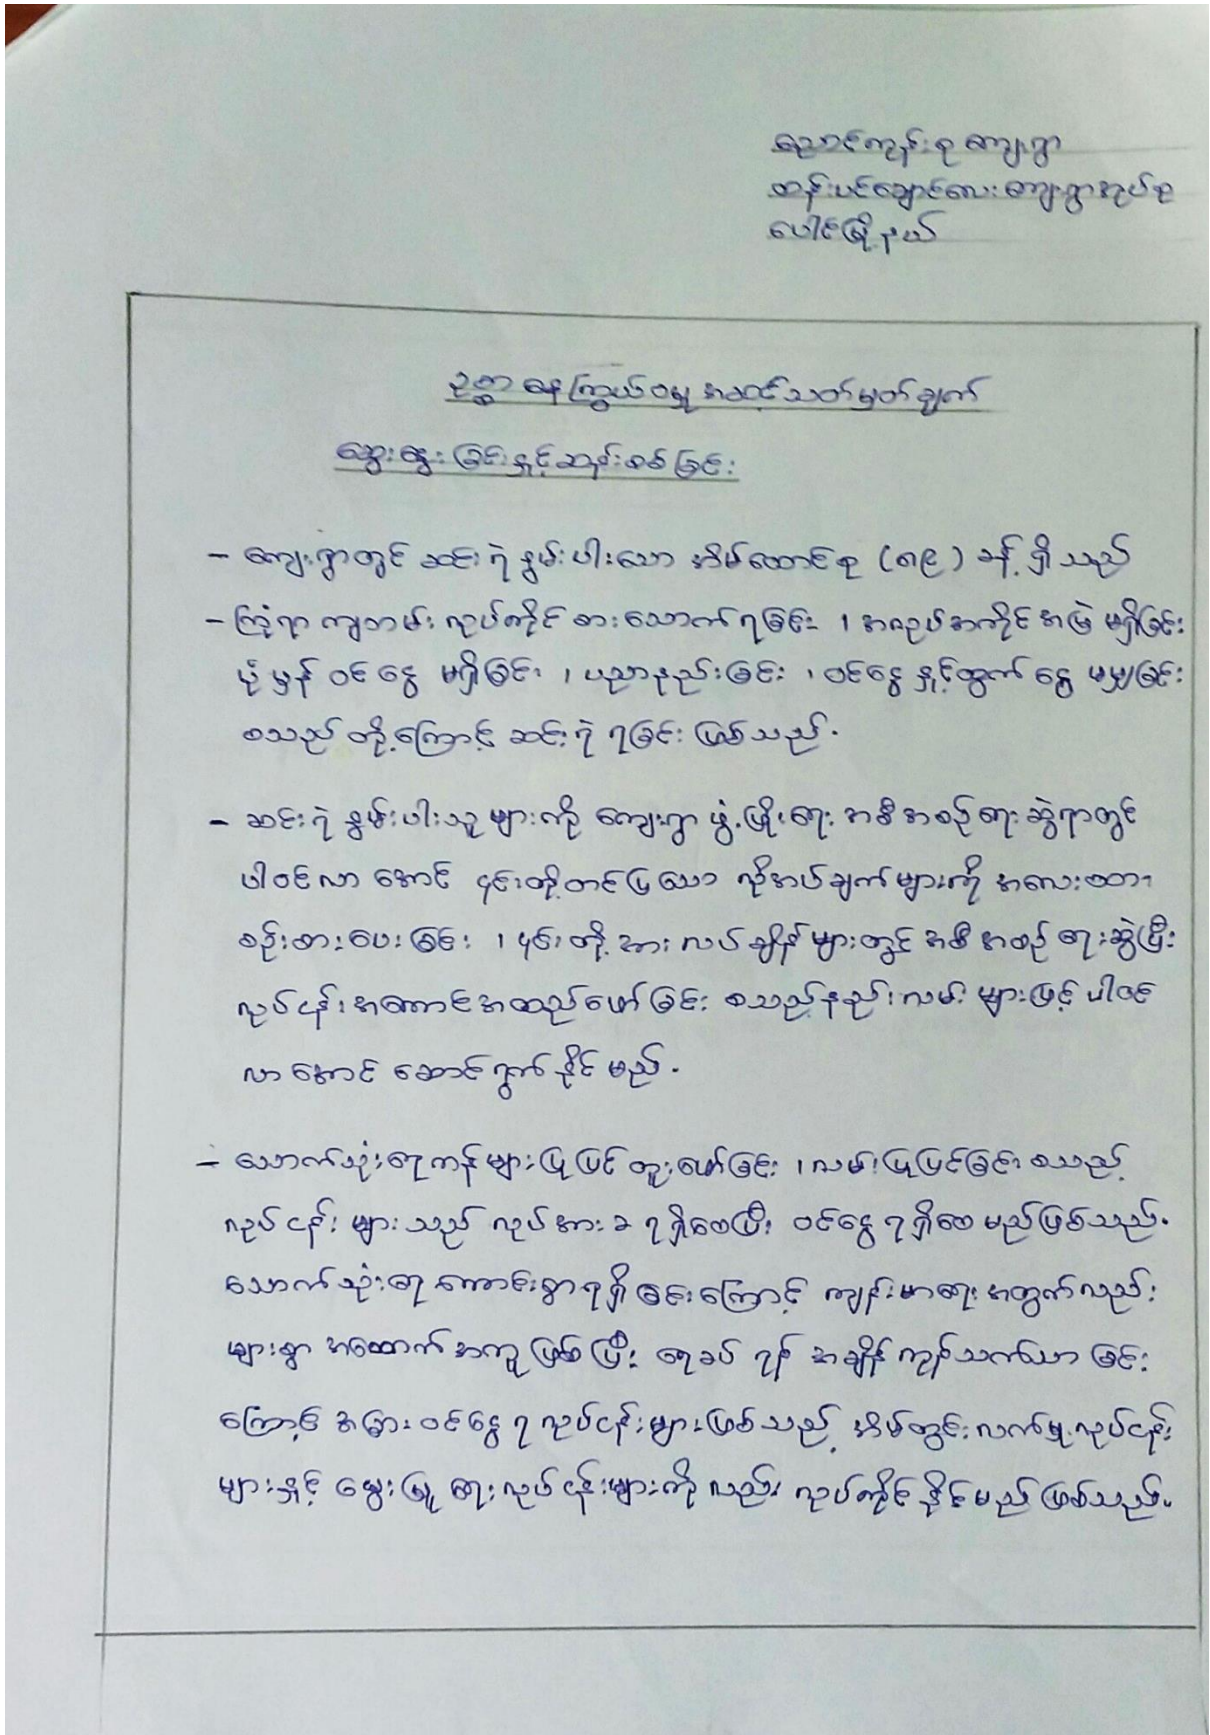 ညောင်ကုန်းစု ကျေးရွာ
ထန်းပင်ချောင်လေး ကျေးရွာအုပ်စု
ပေါင်မြို့နယ်
ဥစ္စာ နေ ကြွယ်ဝမှု အဆင့်သတ်မှတ်ချက်
ဆွေးနွေးခြင်းနှင့်ဆန်းစစ်ခြင်း
– ကျေးရွာတွင် ဆင်းရဲ နွမ်းပါးသော အိမ်ထောင်စု (၈၉) ခန့် ရှိသည်
– ကြုံရာ ကျဘမ်း လုပ်ကိုင် စားသောက်ရခြင်း ၊ အလုပ်အကိုင် အမြဲ မရှိခြင်း
ပုံမှန် ဝင်ငွေ မရှိခြင်း ၊ ပညာနည်းခြင်း ၊ ဝင်ငွေ နှင့်ထွက်ငွေ မမျှခြင်း
စသည် တို့ကြောင့် ဆင်းရဲ ရခြင်း ဖြစ်သည်.
– ဆင်းရဲ နွမ်းပါးသူများကို ကျေးရွာ ဖွံ့ဖြိုးရေး အစီအစဉ်ရေး ဆွဲရာတွင်
ပါဝင်လာအောင် ၎င်းတို့တင်ပြသော လိုအပ်ချက်များကို အလေးထား
စဉ်းစားပေးခြင်း ၊ ၎င်းတို့ အားလပ်ချိန်များတွင် အစီအစဉ်ရေးဆွဲပြီး
လုပ်ငန်းအကောင်အထည်ဖော်ခြင်း စသည့်နည်းလမ်းများဖြင့် ပါဝင်
လာအောင် ဆောင်ရွက်နိုင်မည်.
– သောက်သုံးရေကန်များပြုပြင်တူးဖော်ခြင်း ၊ လမ်းပြုပြင်ခြင်း စသည့်
လုပ်ငန်းများသည် လုပ်အားခရရှိစေပြီး ဝင်ငွေရရှိစေမည်ဖြစ်သည်.
သောက်သုံးရေကောင်းစွာရရှိခြင်းကြောင့် ကျန်းမာရေးအတွက်လည်း
များစွာ အထောက်အကူဖြစ်ပြီး ရေခပ်ရန် အချိန်ကုန်သက်သာခြင်း
ကြောင့် အခြားဝင်ငွေရလုပ်ငန်းများဖြစ်သည့် အိမ်တွင်းလက်မှုလုပ်ငန်း
များနှင့် မွေးမြူရေးလုပ်ငန်းများကိုလည်း လုပ်ကိုင်နိုင်မည်ဖြစ်သည်.